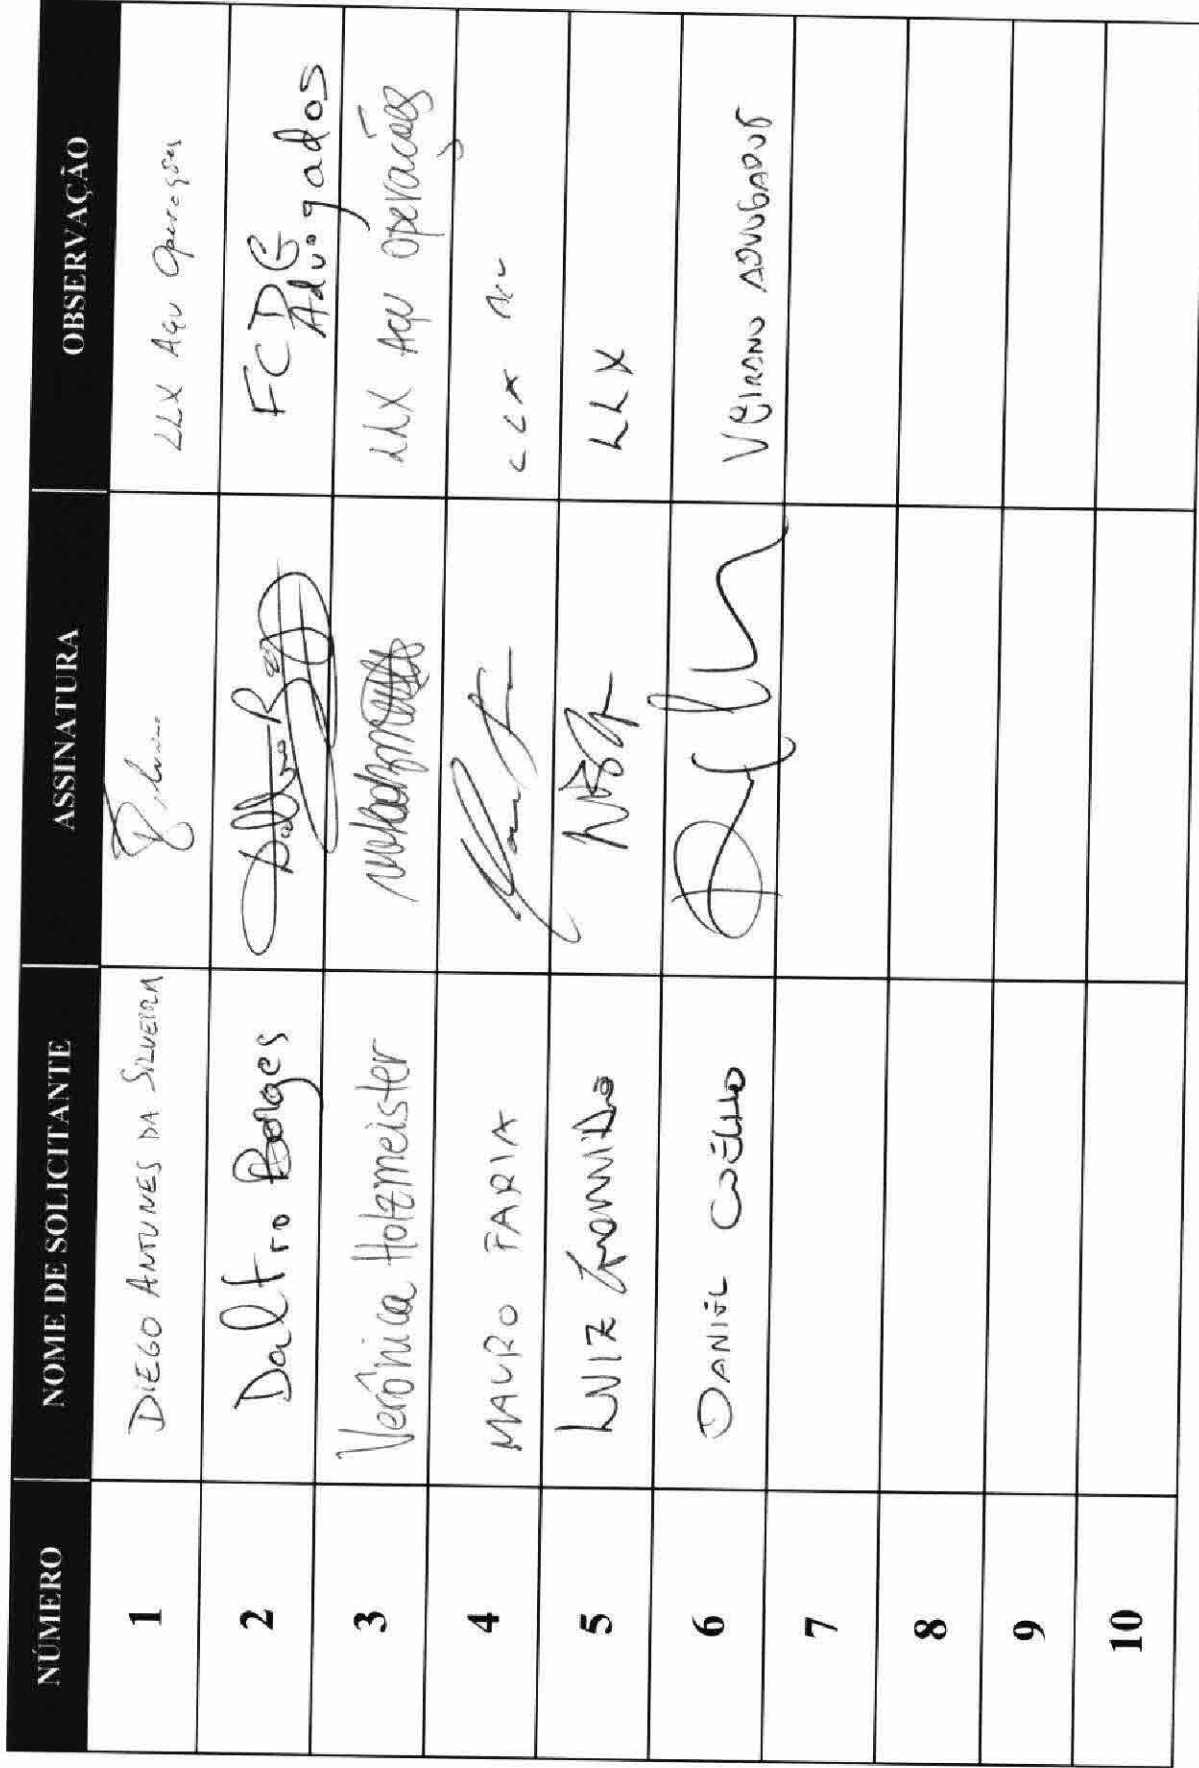 NÚMERO NOME DE SOLICITANTE ASSINATURA OBSERVAÇÃO
1 DIEGO ANTUNES DA SILVEIRA LLX AÇU Operações
2 Daltro Borges FCDG Advogados
3 Verônica Holzmeister LLX AÇU operações
4 MAURO FARIA LLX
5 LUIZ LLX
6 DANIEL COELHO VEIRANO ADVOGADOS
7
8
9
10